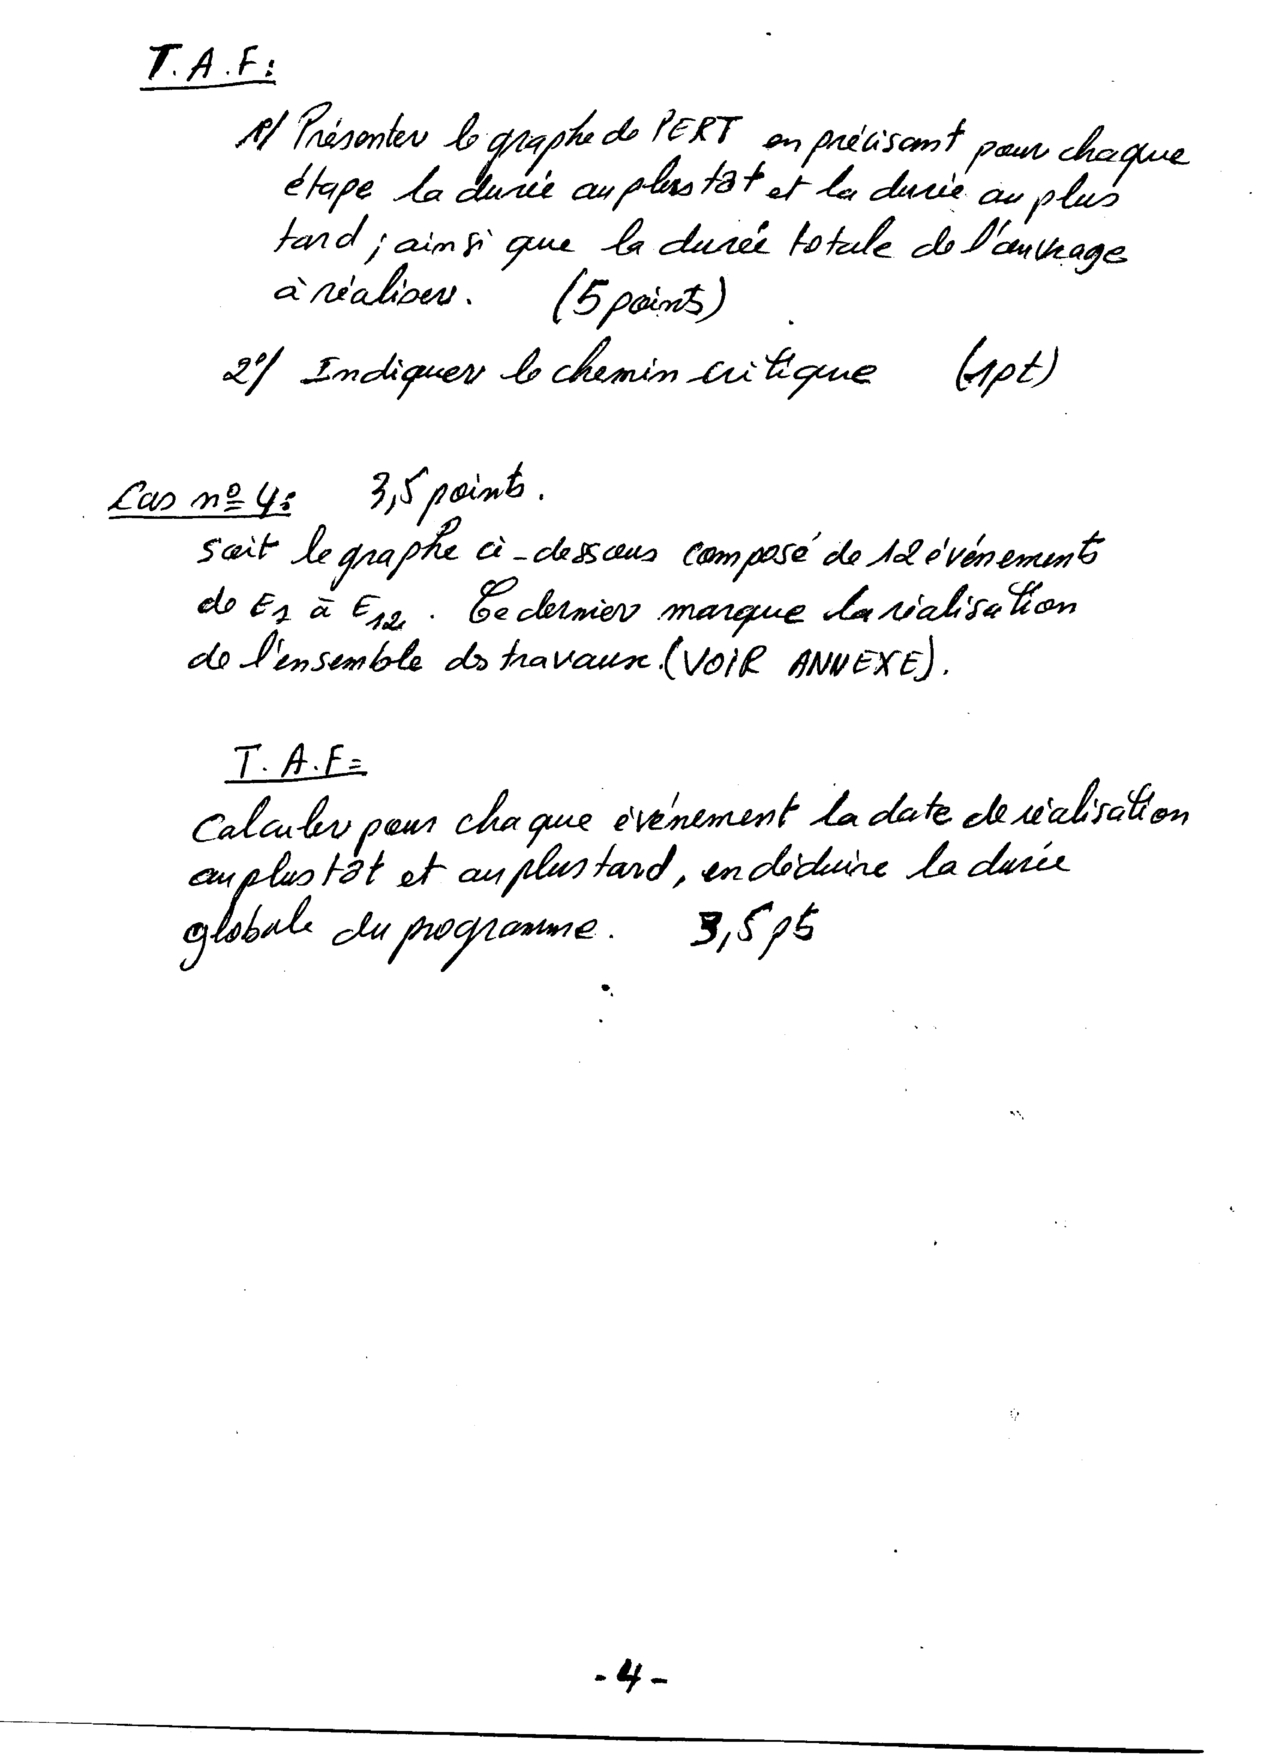 T.A.F:
1°/ Présenter le graphe de PERT en précisant pour chaque
étape la durée au plus tôt et la durée au plus
tard ; ainsi que la durée totale de l'ouvrage
à réaliser. (5 points)
2°/ Indiquer le chemin critique (1pt)
Cas n° 4: 3,5 points.
soit le graphe ci-dessous composé de 12 événements
de E1 à E12. Ce dernier marque la réalisation
de l'ensemble des travaux. (VOIR ANNEXE).
T.A.F=
Calculer pour chaque événement la date de réalisation
au plus tôt et au plus tard, en déduire la durée
globale du programme. 3,5 pts
- 4 -